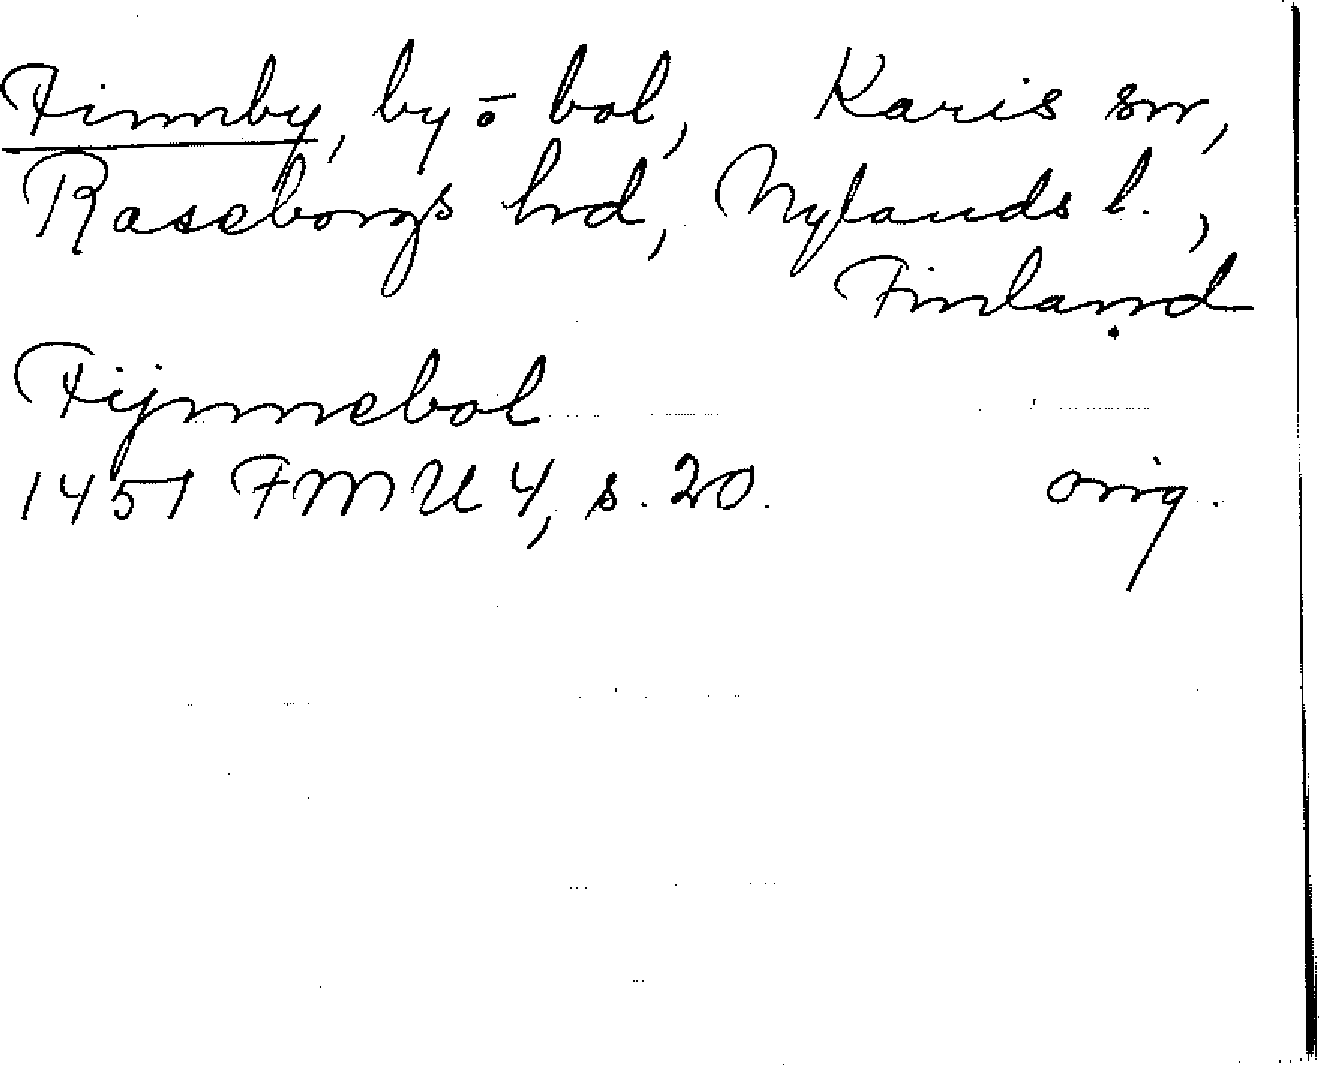 Finnby, by o bol, Karis sn,
Raseborgs hrd, Nylands l.,
Finland
Fijnnebol
1451 FMU 4, s. 20. orig.